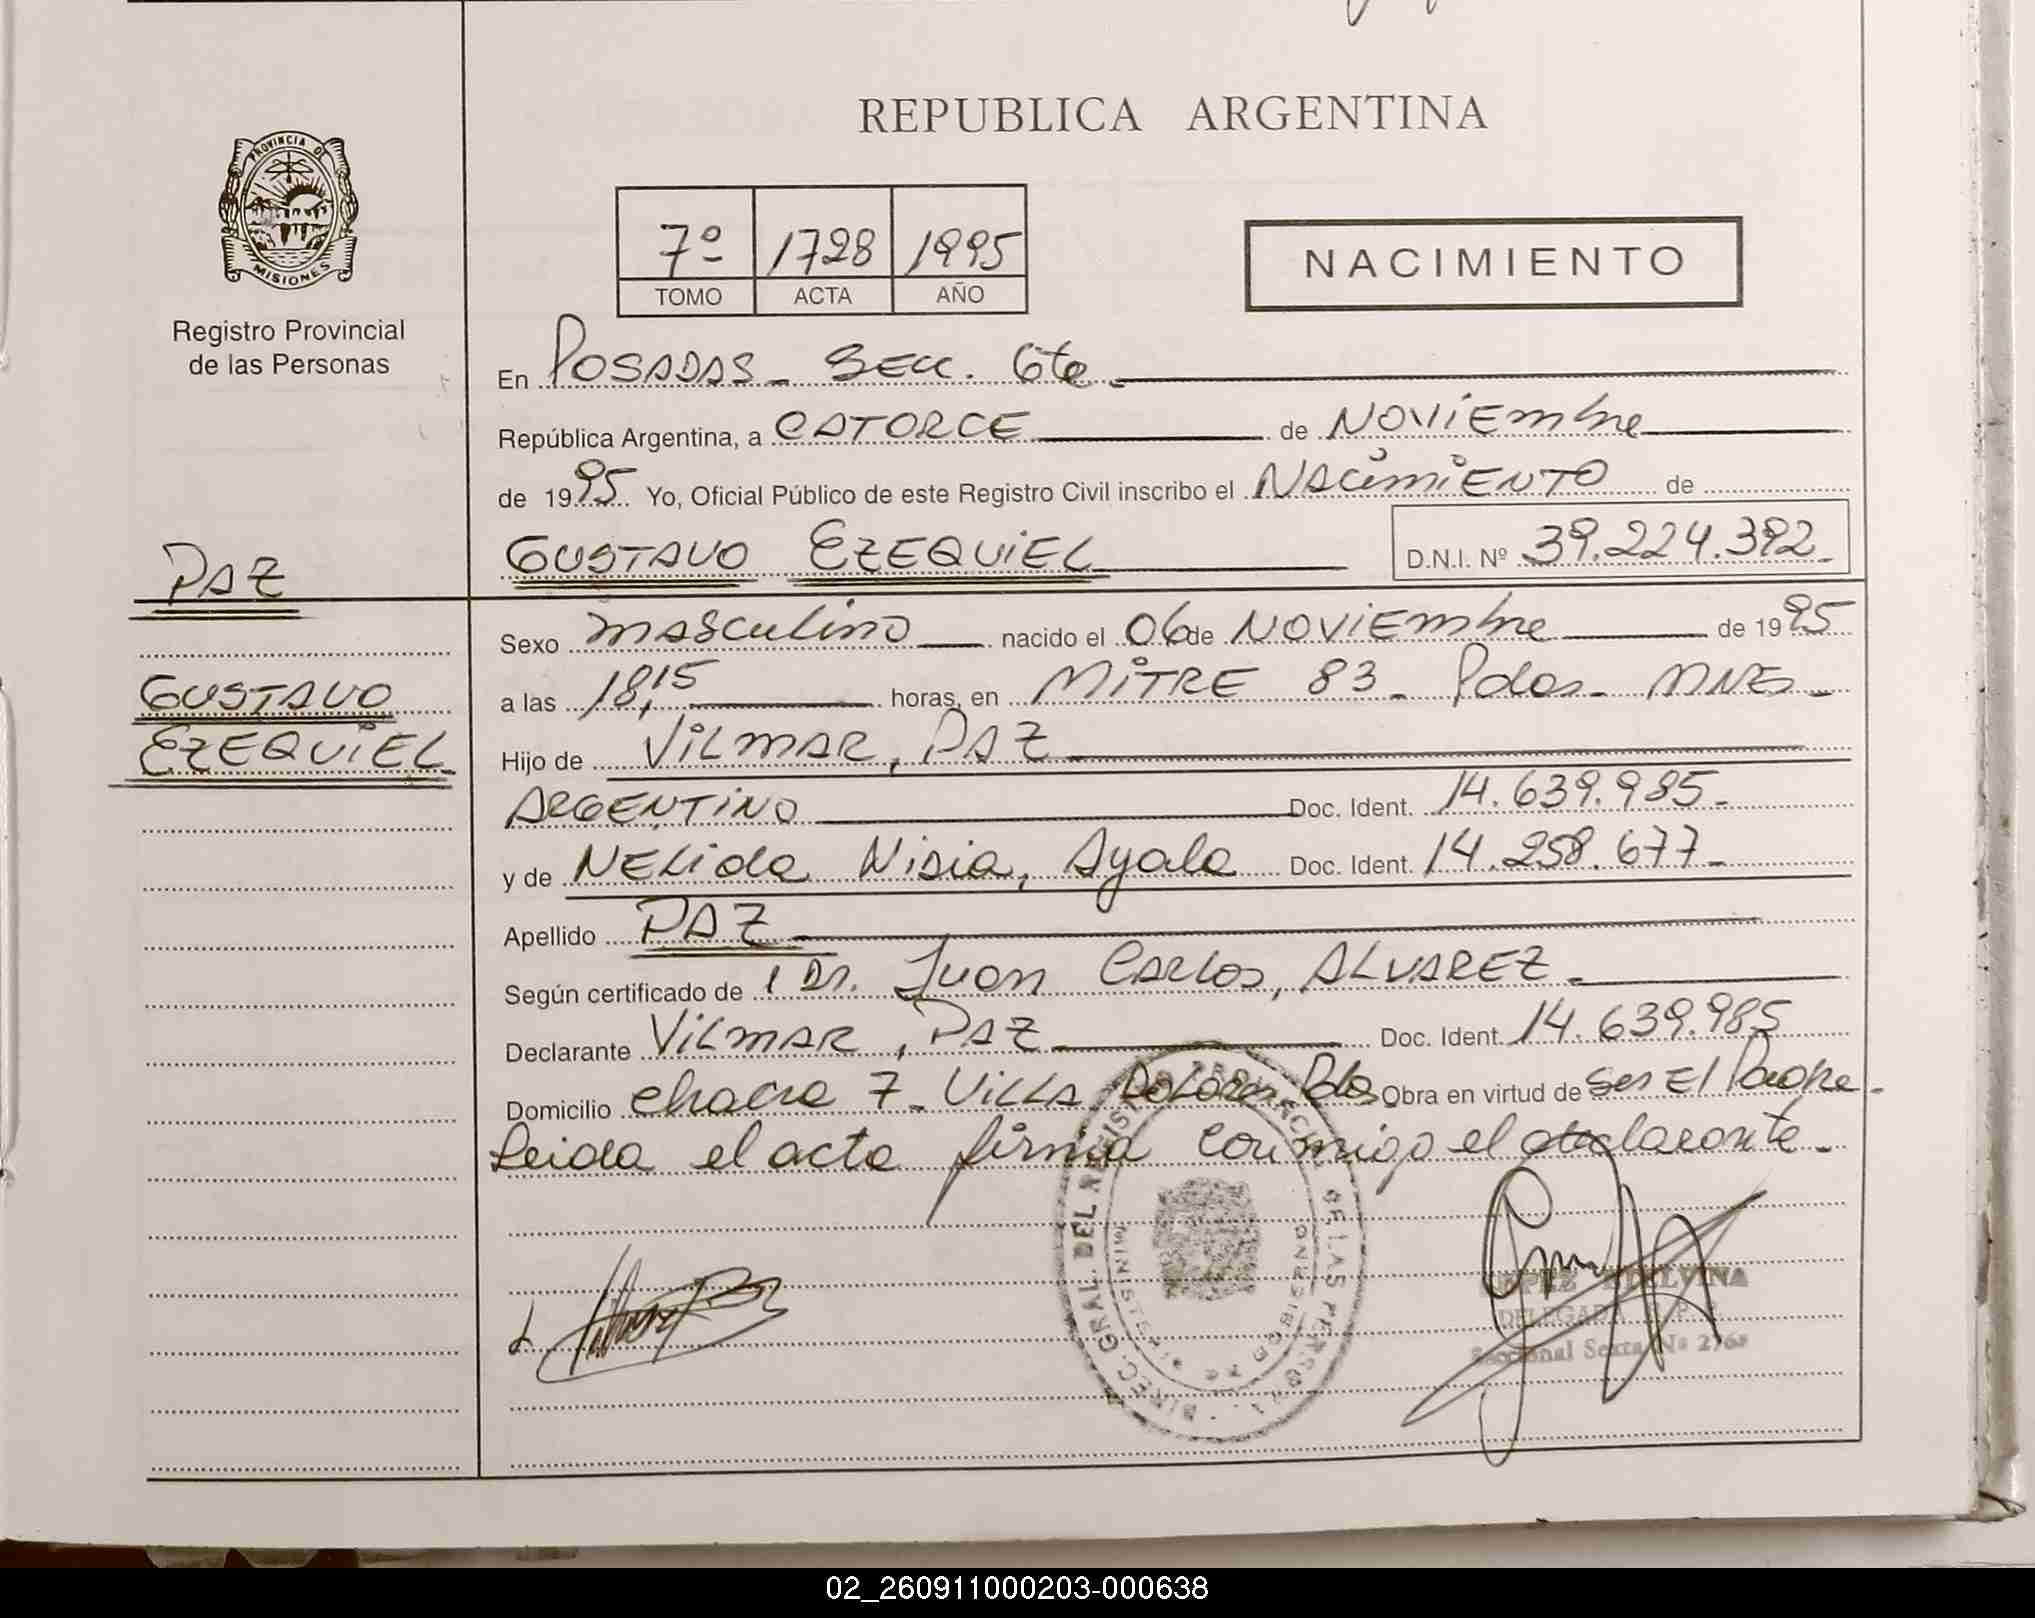 REPUBLICA ARGENTINA
PROVINCIA DE
MISIONES
Registro Provincial
de las Personas
7º 1728 1995
TOMO ACTA AÑO
NACIMIENTO
En POSADAS - SECC. 6ta -
República Argentina, a CATORCE de NOVIEmbre
de 1995 Yo, Oficial Público de este Registro Civil inscribo el NACimiENTO de
GUSTAVO EZEQUiEL D.N.I. Nº 39.224.392-
PAZ
GUSTAVO
EZEQUiEL
Sexo mASCulino nacido el 06 de NOViEmbre de 1995
a las 18,15 horas, en MiTRE 83 - Pdas - MNES -
Hijo de ViLmAR, PAZ
ARGENTiNO Doc. Ident. 14.639.985-
y de NELida Nisia, Ayala Doc. Ident. 14.258.677-
Apellido PAZ
Según certificado de Dr. Juan CARLos, ALVAREZ -
Declarante ViLmAR, PAZ Doc. Ident. 14.639.985
Domicilio chacra 7 - ViLLA DoLores - Pdas Obra en virtud de ser El Padre -
Leida el acta firma conmigo el declarante -
DIREC. GRAL. DEL REGISTRO PROVINCIAL DE LAS PERSONAS
MINISTERIO DE GOBIERNO
DELEGADA R. P. P.
Seccional Sexta Nº 2768
02_260911000203-000638